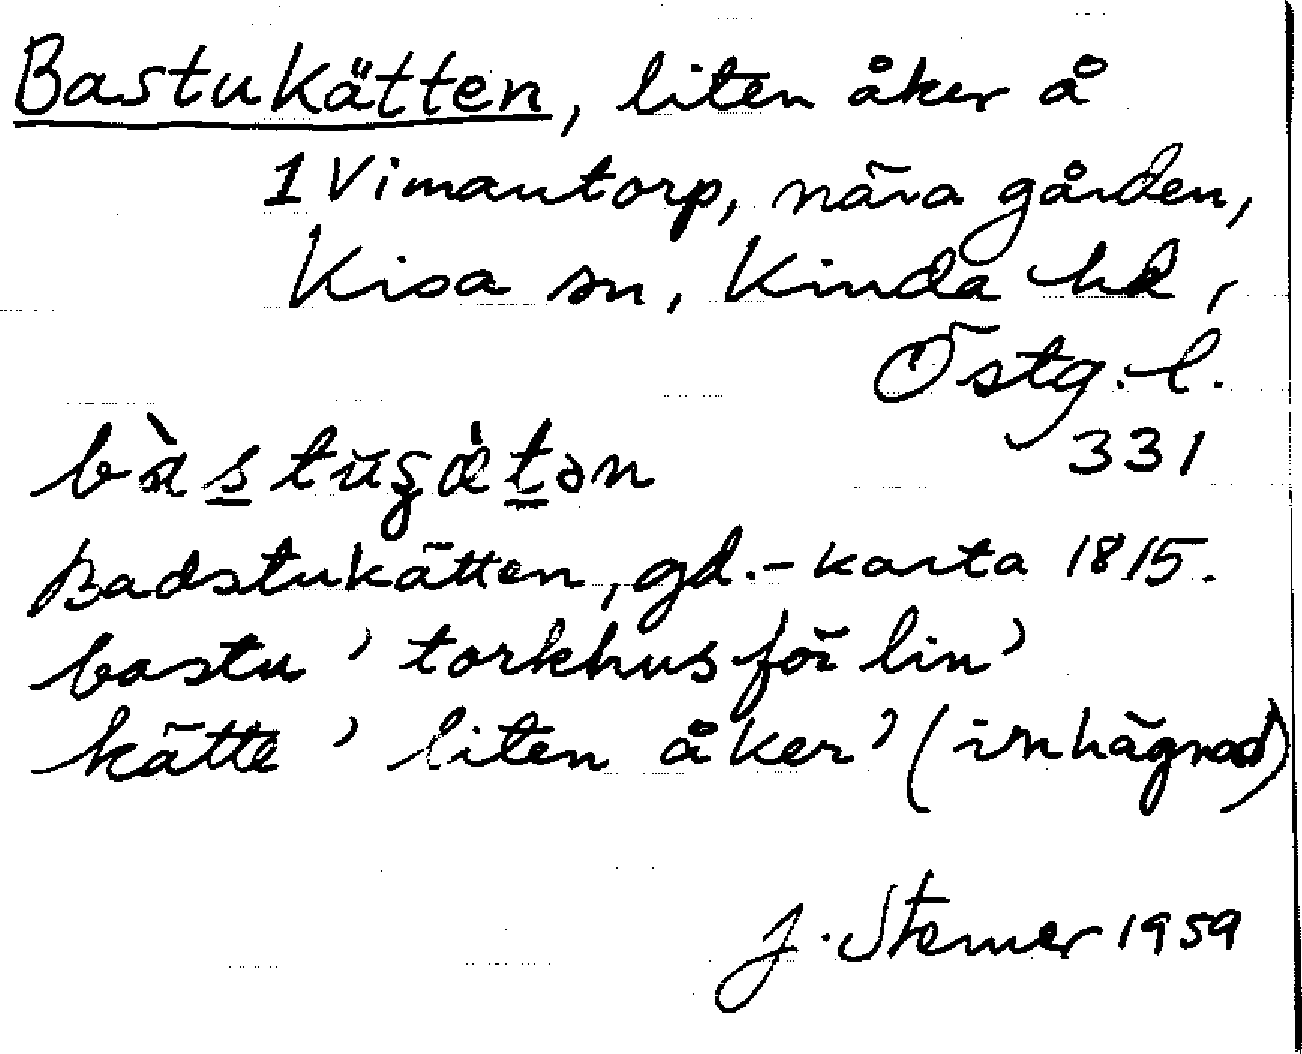 Bastukätten, liten åker å
1 Vimantorp, nära gården,
Kisa sn, Kinda hd,
Östg. l.
331
bàstugæ̀tən
Badstukätten, gd.-karta 1815.
bastu 'torkhus för lin'
kätte 'liten åker' (inhägnad)
J. Sterner 1959